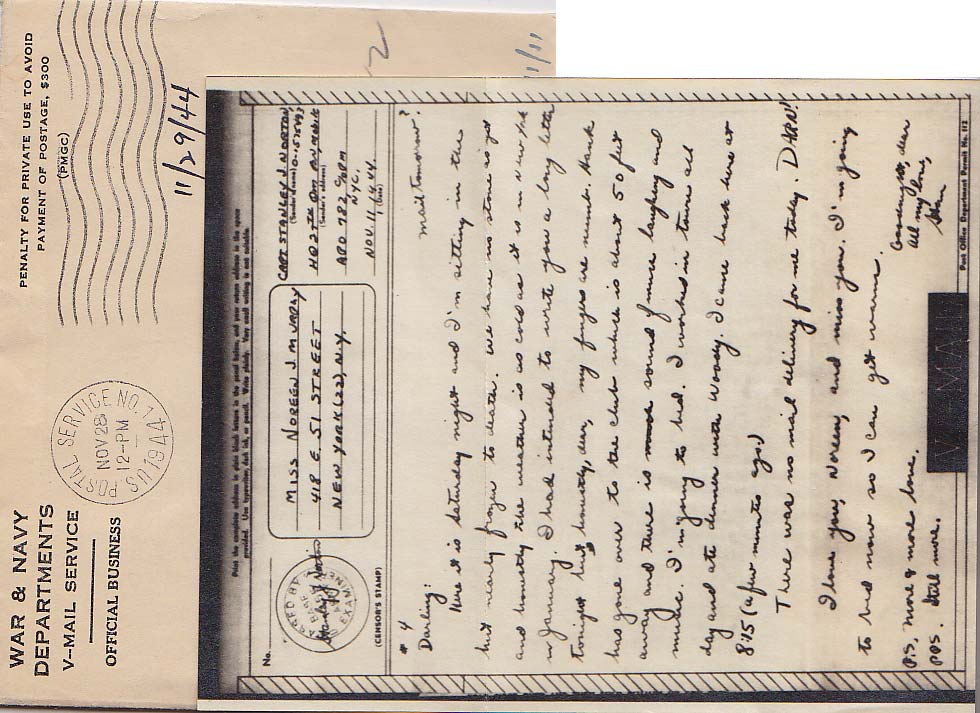 WAR & NAVY
DEPARTMENTS
V-MAIL SERVICE
OFFICIAL BUSINESS
U.S. POSTAL SERVICE NO. 1
NOV 28
12-PM
1944
PENALTY FOR PRIVATE USE TO AVOID
PAYMENT OF POSTAGE, $300
(PMGC)
11/29/44
2
11/11
Print the complete address in plain block letters in the panel below, and your return address in the space
provided. Use typewriter, dark ink, or pencil. Write plainly. Very small writing is not suitable.
No.
PASSED BY
EXAMINER
(CENSOR'S STAMP)
MISS NOREEN J. MURRAY
418 E. 51 STREET
NEW YORK (22) N.Y.
CAPT STANLEY J. NORTON,
(Sender's name)
HQ 25TH
(Sender's address)
APO 782 C/O PM
N.Y.C.
NOV. 11 1944
(Date)
#4
mail tomorrow?
Darling:
Here it is Saturday night and I'm sitting in the
hut nearly frozen to death. We have no stove as yet
and honestly the weather is as cold as it is in New York
in January. I had intended to write you a long letter
tonight but honestly, dear, my fingers are numb. Hank
has gone over to the club which is about 50 feet
away and there is much sound of much laughing and
music. I'm going to bed. I worked in town all
day and ate dinner with Woody. I came back here at
8:15 (a few minutes ago.)
There was no mail delivery for me today. DARN!
I love you, Noreen, and miss you. I'm going
to bed now so I can get warm.
Goodnight, dear
All my love,
Stan
P.S. More & more love.
PPS. Still more.
V-MAIL
Post Office Department Permit No. 112